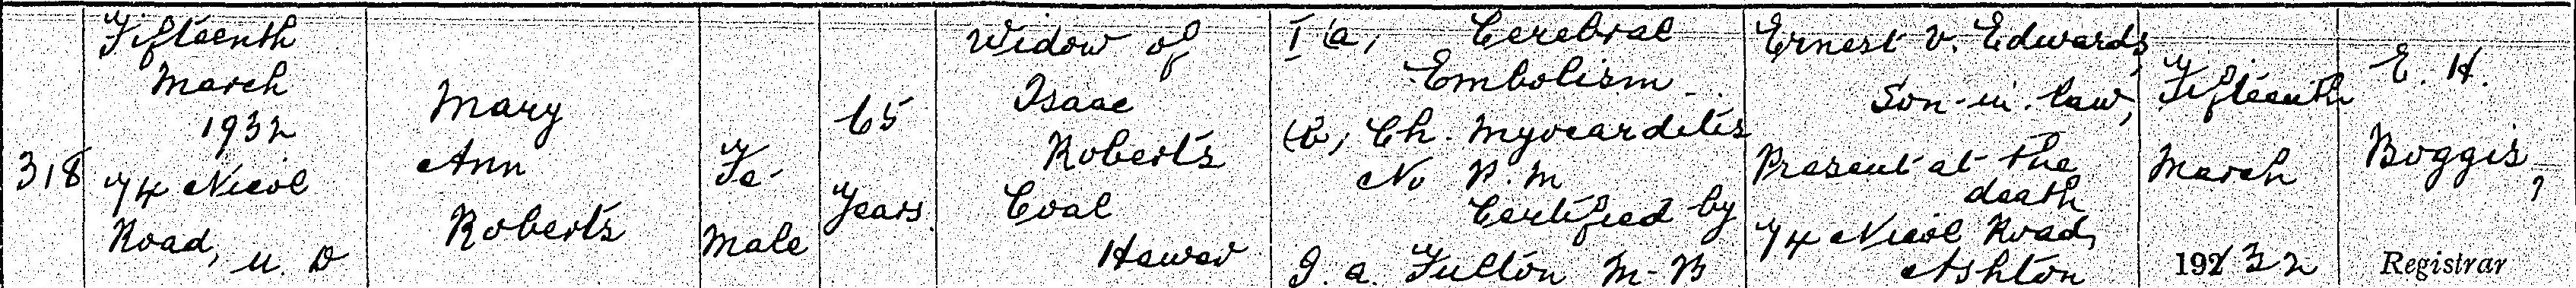 318
Fifteenth
March
1932
74 Nicol
Road, U. D
Mary
Ann
Roberts
Fe-
Male
65
Years
Widow of
Isaac
Roberts
Coal
Hewer
I (a, Cerebral
Embolism
(b, Ch. Myocarditis
No P.M
Certified by
J. a. Fulton M-B
Ernest V. Edwards,
Son-in-law,
Present at the
death
74 Nicol Road,
Ashton
Fifteenth
March
1932
E. H.
Boggis,
Registrar